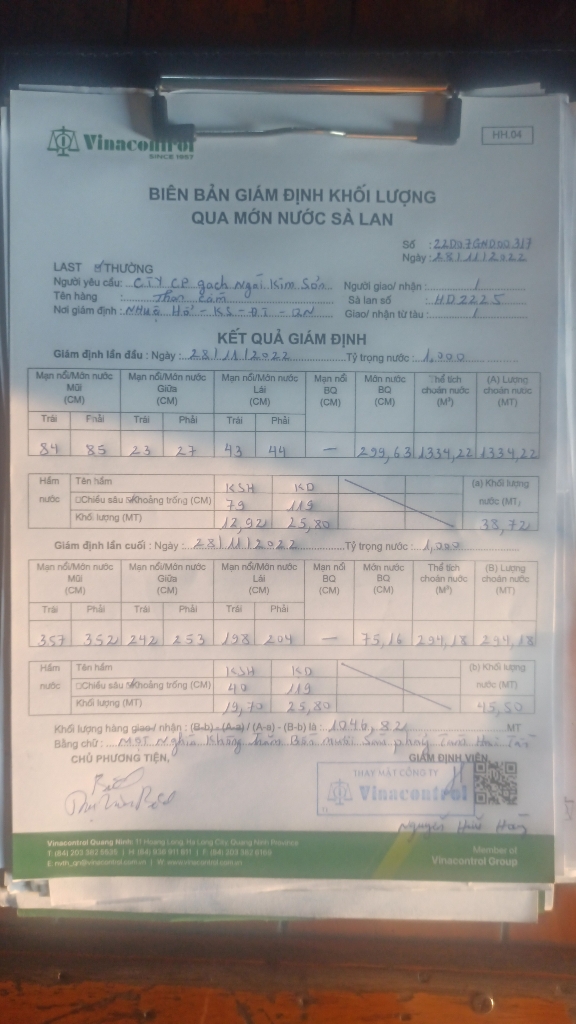 Vinacontrol
SINCE 1957
HH.04
BIÊN BẢN GIÁM ĐỊNH KHỐI LƯỢNG
QUA MỚN NƯỚC SÀ LAN
Số : 22D07GND00317
Ngày : 28/11/2022
LAST THƯỜNG
Người yêu cầu: CTY CP gạch Ngói Kim Sơn Người giao/ nhận : /
Tên hàng : Than cám Sà lan số : HD2225
Nơi giám định : Nhuệ Hổ - KS - ĐT - QN Giao/ nhận từ tàu : /
KẾT QUẢ GIÁM ĐỊNH
Giám định lần đầu : Ngày : 28/11/2022 Tỷ trọng nước : 1,000
Mạn nổi/Mớn nước Mũi (CM) Mạn nổi/Mớn nước Giữa (CM) Mạn nổi/Mớn nước Lái (CM) Mạn nổi BQ (CM) Mớn nước BQ (CM) Thể tích choán nước (M³) (A) Lượng choán nước (MT)
Trái Phải Trái Phải Trái Phải
84 85 23 27 43 44 — 299,63 1334,22 1334,22
Hầm nước Tên hầm KSH KD (a) Khối lượng nước (MT)
Chiều sâu Khoảng trống (CM) 79 119
Khối lượng (MT) 12,92 25,80 38,72
Giám định lần cuối : Ngày : 28/11/2022 Tỷ trọng nước : 1,000
Mạn nổi/Mớn nước Mũi (CM) Mạn nổi/Mớn nước Giữa (CM) Mạn nổi/Mớn nước Lái (CM) Mạn nổi BQ (CM) Mớn nước BQ (CM) Thể tích choán nước (M³) (B) Lượng choán nước (MT)
Trái Phải Trái Phải Trái Phải
357 352 242 253 198 204 — 75,16 294,18 294,18
Hầm nước Tên hầm KSH KD (b) Khối lượng nước (MT)
Chiều sâu Khoảng trống (CM) 40 119
Khối lượng (MT) 19,70 25,80 45,50
Khối lượng hàng giao/ nhận : (B-b) - (A-a) / (A-a) - (B-b) là : 1046,82 MT
Bằng chữ : Một Nghìn Không trăm Bốn mươi Sáu phẩy Tám Hai Tấn
CHỦ PHƯƠNG TIỆN, GIÁM ĐỊNH VIÊN,
THAY MẶT CÔNG TY
Vinacontrol
Nguyễn Hữu
Vinacontrol Quang Ninh: 11 Hoang Long, Ha Long City, Quang Ninh Province
Member of
Vinacontrol Group